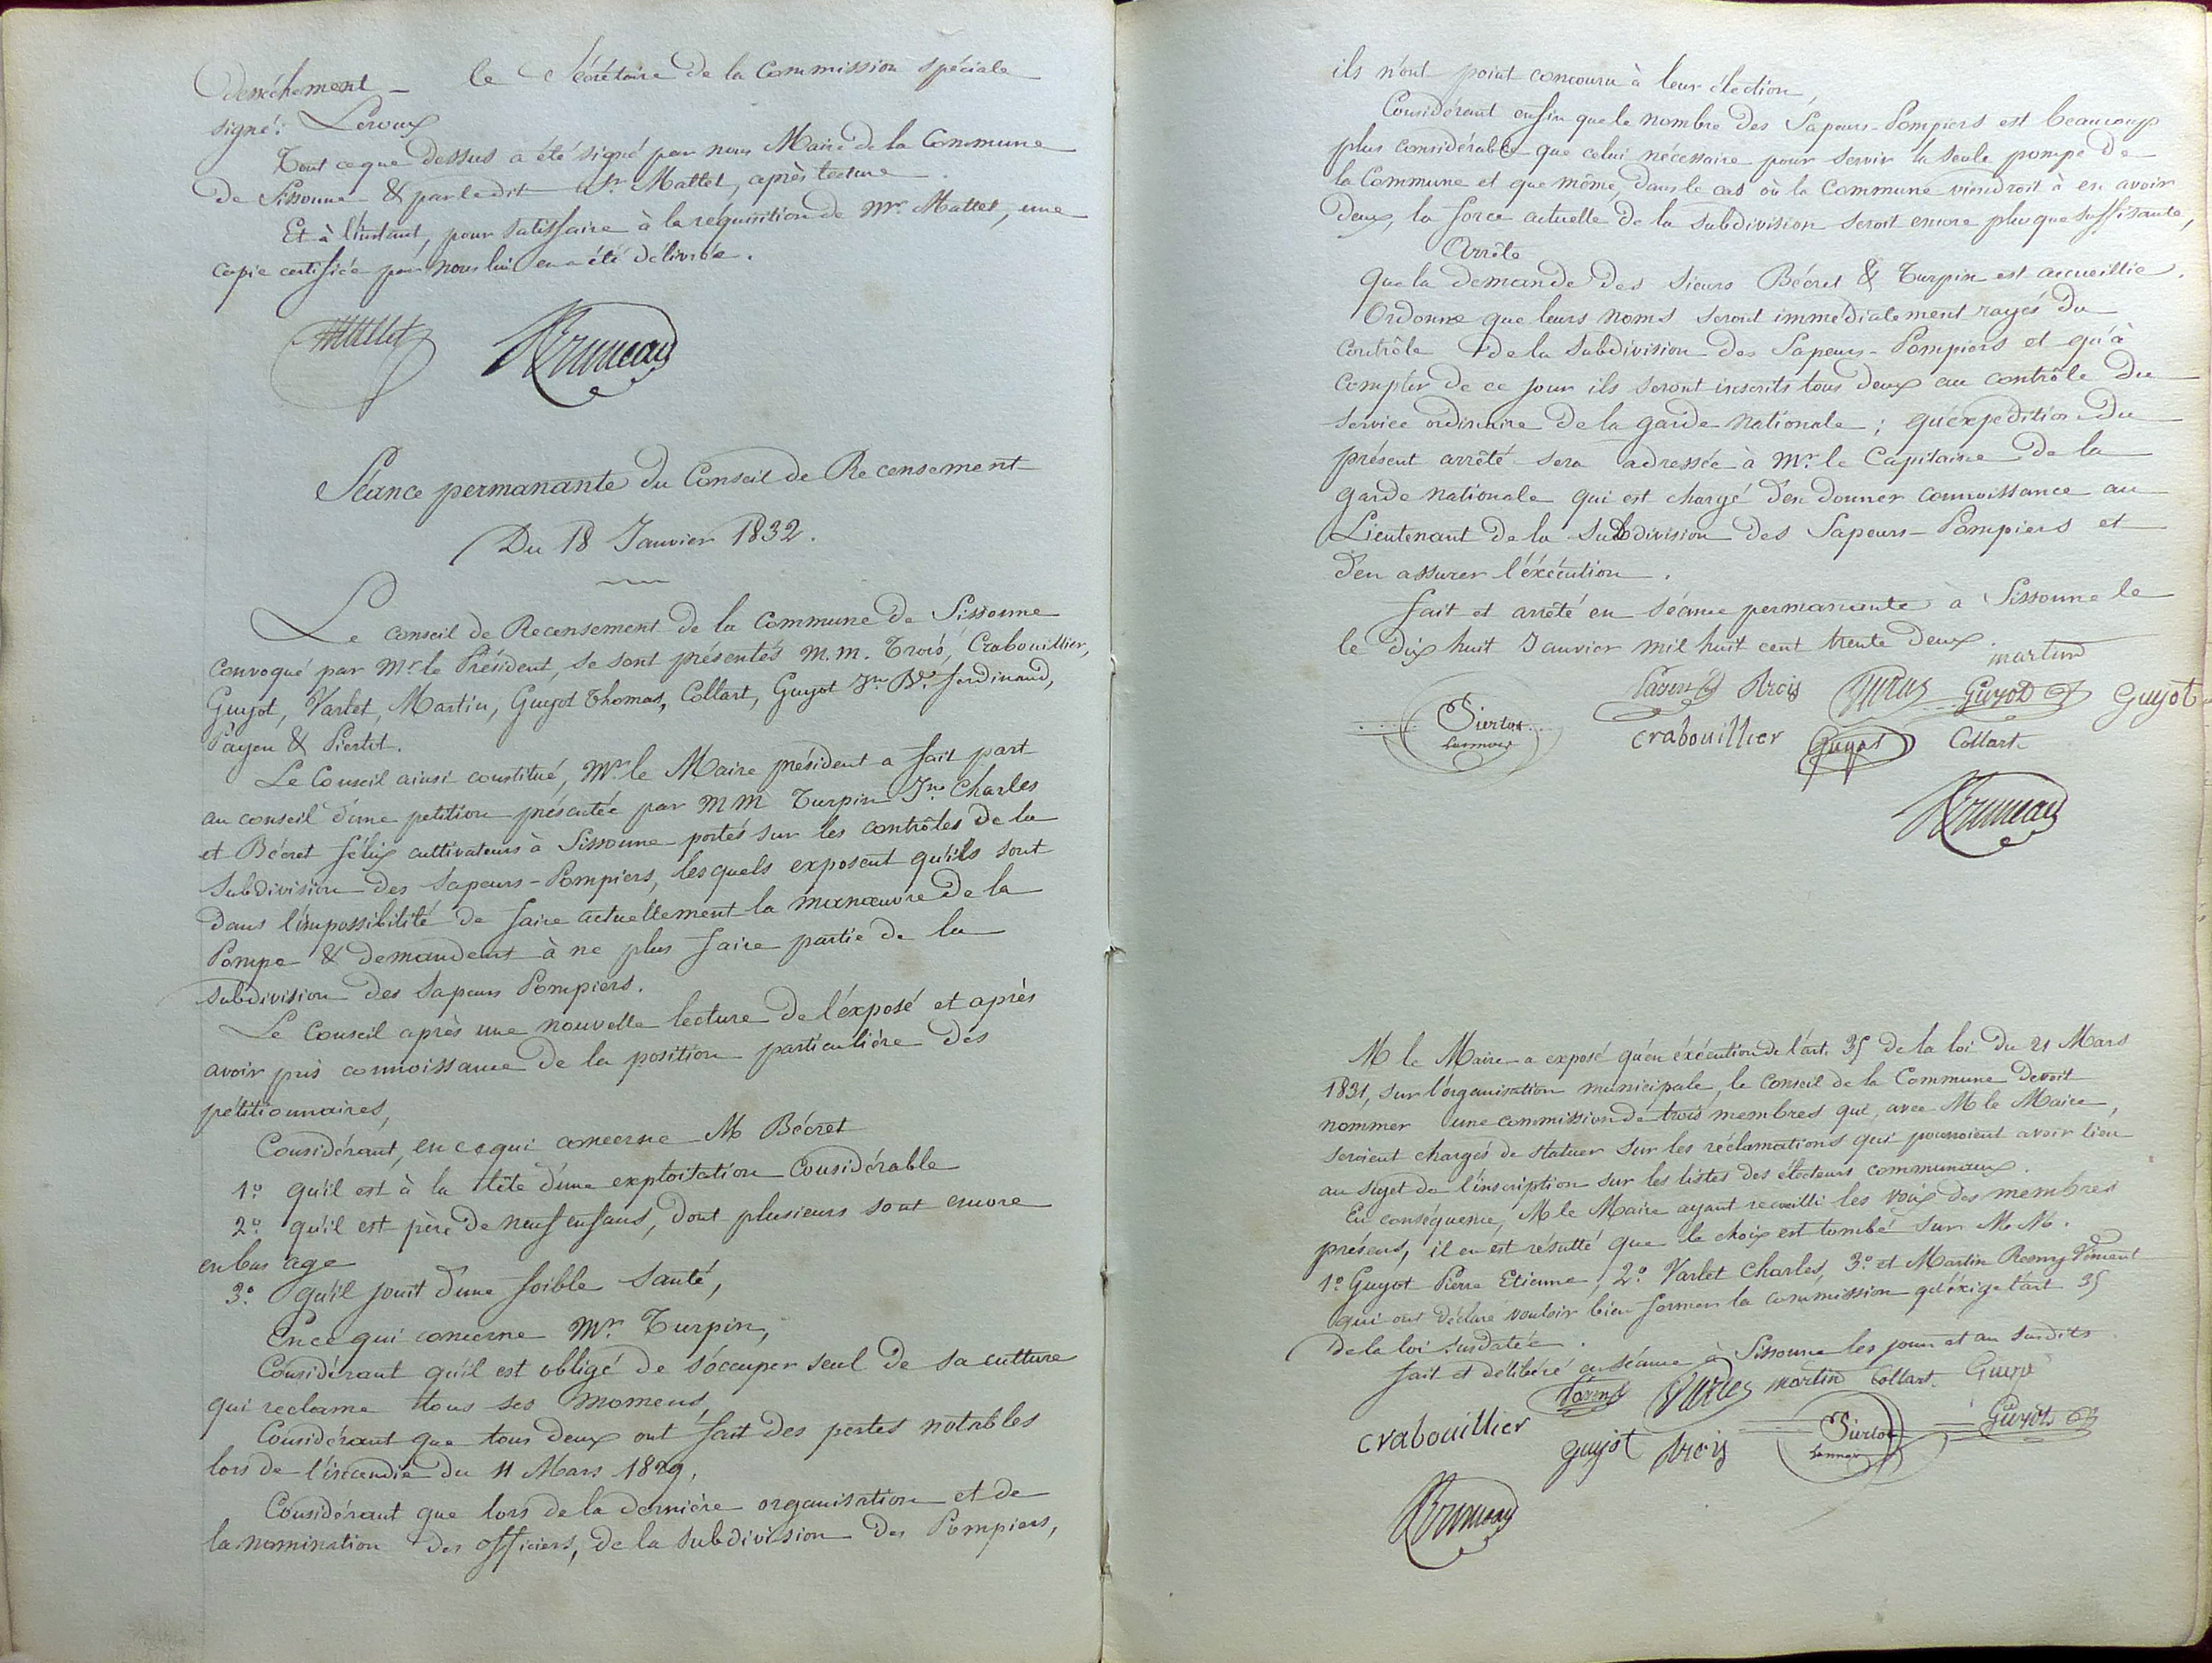 desséchement — le Sécrétaire de la Commission spéciale
signé: Leroux
Tout ce que dessus a été signé par nous Maire de la Commune
de Sissonne & par ledit Sr. Mattet, après lecture.
Et à l'instant, pour satisfaire à la réquisition de Mr. Mattet, une
copie certifiée par nous lui en a été délivrée.
Séance permanante du Conseil de Recensement
Du 18 Janvier 1832.
Le conseil de Recensement de la Commune de Sissonne
convoqué par Mr. le Président, se sont présentés M.M. Trois, Crabouillier,
Guyot, Varlet, Martin, Guyot Thomas, Collart, Guyot Jn. Bte. ferdinand,
Payen & Piertot.
Le Conseil ainsi constitué, Mr. le Maire président a fait part
au conseil d'une petition présentée par MM Turpin Jn. Charles
et Bécret félix cultivateurs à Sissonne portés sur les contrôles de la
Subdivision des Sapeurs-Pompiers, lesquels exposent qu'ils sont
dans l'impossibilité de faire actuellement la manœuvre de la
Pompe & demandent à ne plus faire partie de la
subdivision des Sapeurs Pompiers.
Le Conseil après une nouvelle lecture de l'éxposé et après
avoir pris connoissance de la position particulière des
pétitionnaires,
Considérant, en ce qui concerne M Bécret
1º. qu'il est à la tête d'une exploitation Considérable
2º. qu'il est père de neuf enfans, dont plusieurs sont encore
en bas age
3º. qu'il jouit d'une foible santé,
En ce qui concerne Mr. Turpin,
Considérant qu'il est obligé de s'occuper seul de sa culture
qui reclame tous ses momens,
Considérant que tous deux ont fait des pertes notables
lors de l'incendie du 11 Mars 1829,
Considérant que lors de la dernière organisation et de
la nomination des officiers, de la subdivision des Pompiers,
ils n'ont point concouru à leur élection,
Considérant enfin que le nombre des Sapeurs-Pompiers est beaucoup
plus considérable que celui nécessaire pour servir la seule pompe de
la Commune et que même, dans le cas où la Commune viendroit à en avoir
deux, la force actuelle de la subdivision seroit encore plus que suffisante,
Arrête
Que la demande des Sieurs Bécret & Turpin est accueillie.
Ordonne que leurs noms seront immédiatement rayés du
contrôle de la subdivision des Sapeurs-Pompiers et qu'à
compter de ce jour ils seront inscrits tous deux au contrôle du
service ordinaire de la garde nationale ; qu'expédition du
présent arrêté sera adressée à Mr. le Capitaine de la
garde nationale qui est chargé d'en donner connoissance au
Lieutenant de la subdivision des Sapeurs-Pompiers et
d'en assurer l'éxécution.
fait et arrêté en séance permanante à Sissonne le
le dix huit Janvier mil huit cent trente deux.
martin
Trois Guyot Guyot
Piertot
crabouillier Guyot Collart
M le Maire a exposé qu'en éxécution de l'art. 35 de la loi du 21 Mars
1831, sur l'organisation municipale, le conseil de la Commune devoit
nommer une commission de trois membres qui, avec M le Maire,
seroient chargés de statuer sur les réclamations qui pourroient avoir lieu
au sujet de l'inscription sur les listes des électeurs communaux.
En conséquence, M le Maire ayant recueilli les voix des membres
présens, il en est résulté que le choix est tombé sur M.M.
1º. Guyot Pierre Etienne, 2º. Varlet Charles, 3º. et Martin Remy Vincent
qui ont déclaré vouloir bien former la commission qu'éxige l'art 35
de la loi susdatée.
fait et délibéré en séance à Sissonne les jour et an susdits
martin Collart Guyot
crabouillier Guyot Trois Piertot Guyot